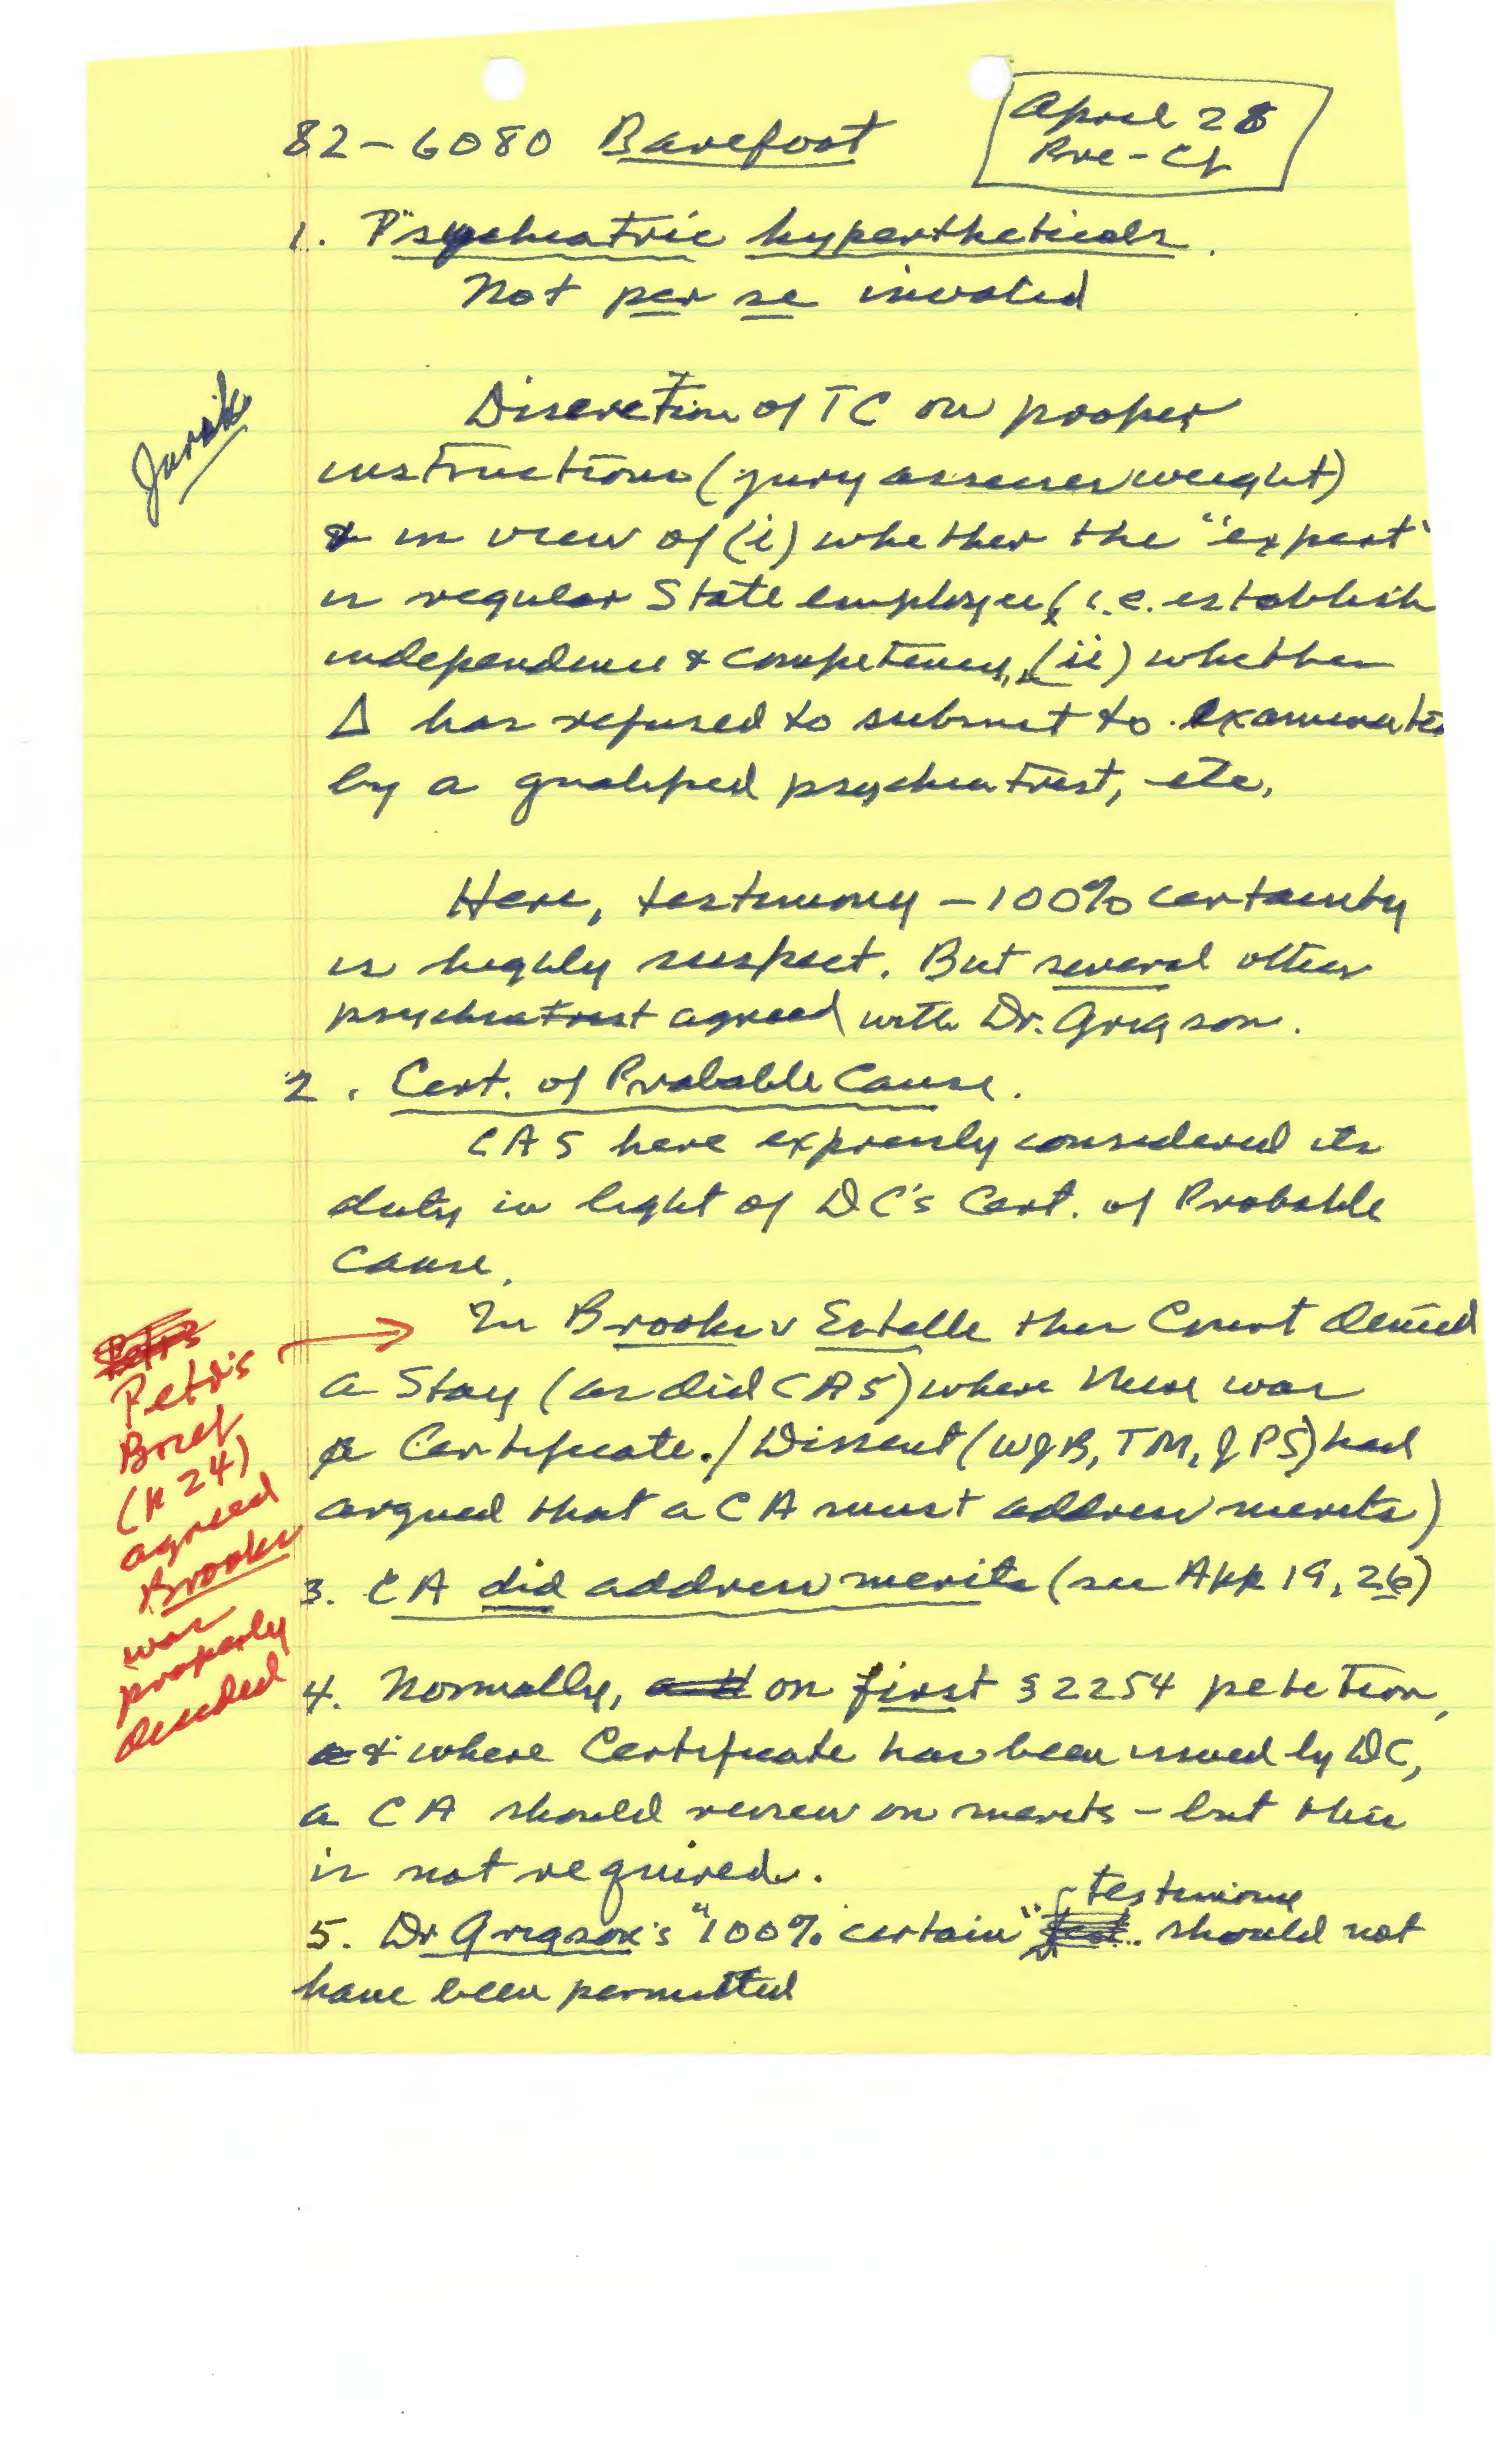 82-6080 Barefoot
April 28
Pre-Cf
1. Psychiatric hypertheticals.
Not per se invalid
Jurek
Discretion of TC on proper
instructions (jury assesses weight)
& in view of (i) whether the "expert"
is regular State employee, i.e. establish
independence & competency, (ii) whether
Δ has refused to submit to examinatio
by a qualified psychiatrist, etc.
Here, testimony - 100% certainty
is highly suspect. But several other
psychiatrist agreed with Dr. Grigson.
2. Cert. of Probable Cause.
CA5 here expressly considered its
duty in light of DC's Cert. of Probable
Cause.
In Brooks v Estelle this Court denied
a Stay (as did CA5) where there was
a Certificate./Dissent (WJB, TM, JPS) had
argued that a CA must address merits)
Petr's
Brief
(p 24)
agreed
Brooks
was
properly
decided
3. CA did address merits (see App 19, 26)
4. Normally, on first § 2254 petition,
& where Certificate has been issued by DC,
a CA should review on merits - but this
is not required.
5. Dr Grigson's "100% certain" testimony should not
have been permitted